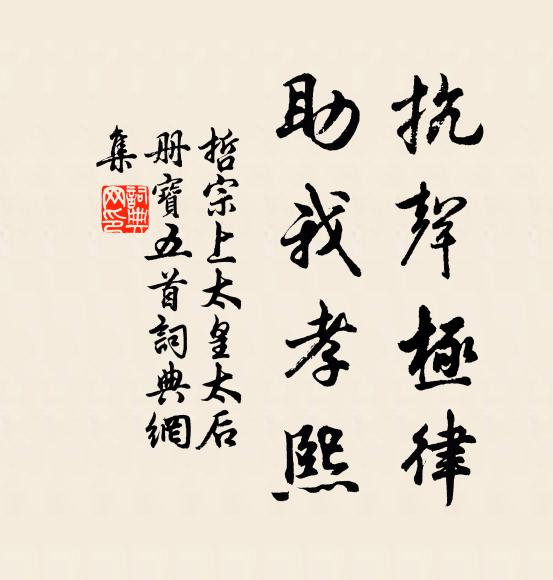 抗聲極律
助我孝熙
哲宗上太皇太后
册寶五首詞典網
集
詞典網印